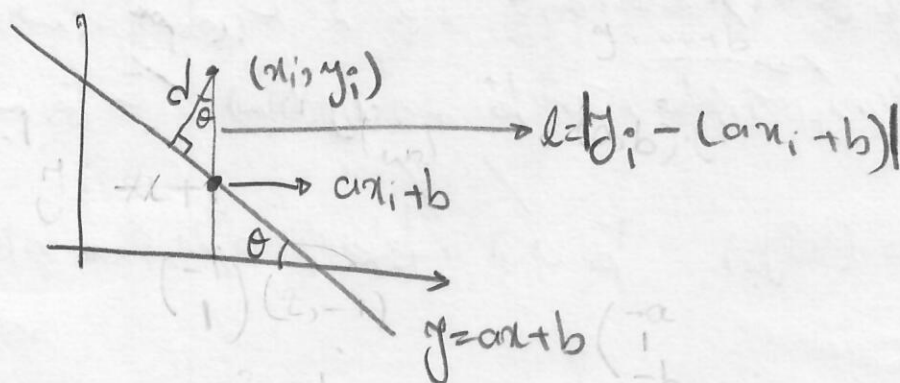 (xᵢ, yᵢ)
d
θ
l=|yᵢ - (axᵢ+b)|
axᵢ+b
θ
y=ax+b